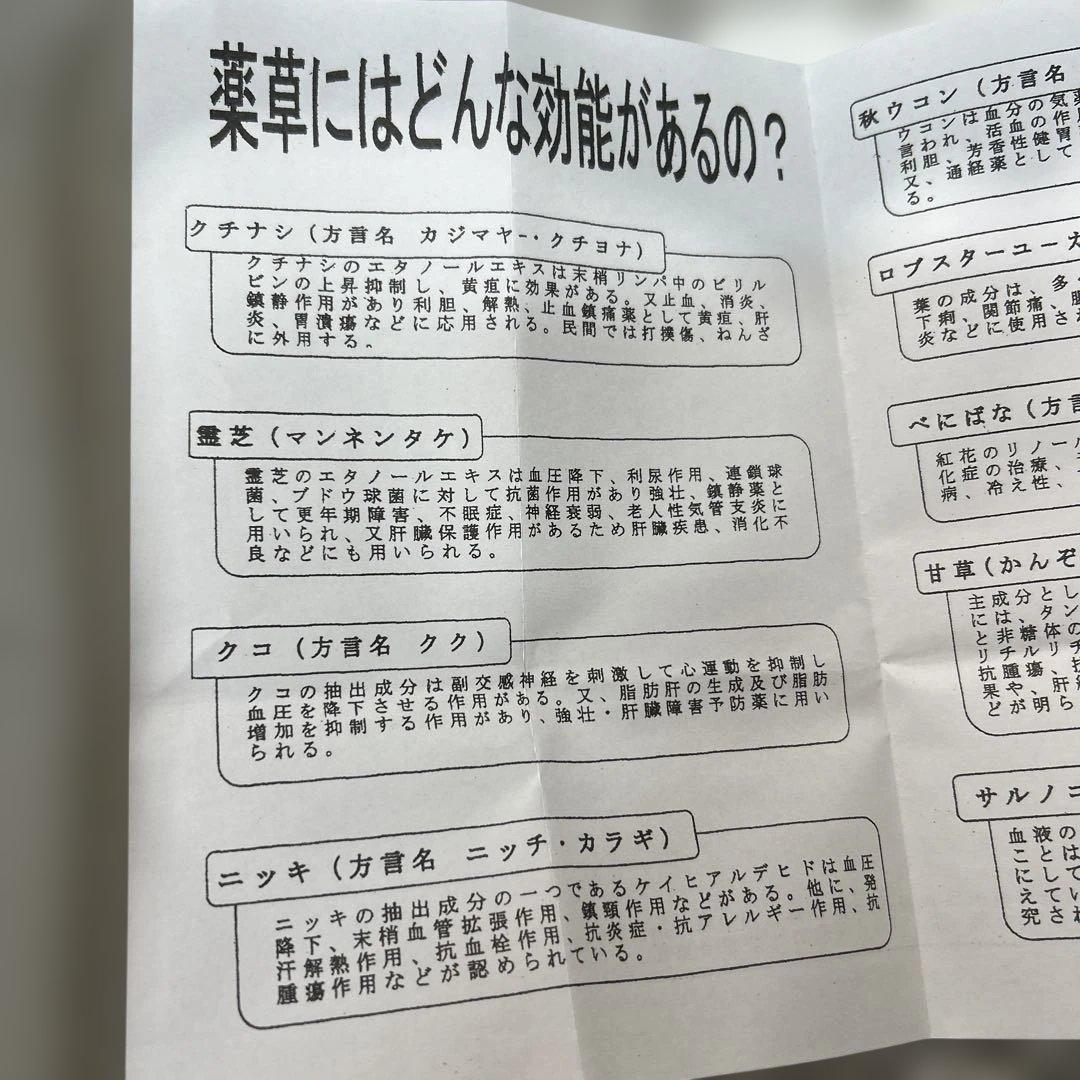 薬草にはどんな効能があるの？
クチナシ（方言名 カジマヤー・クチヨナ）
クチナシのエタノールエキスは末梢リンパ中のビリル
ビンの上昇抑制し、黄疸に効果がある。又止血、消炎、
鎮静作用があり利胆、解熱、止血鎮痛薬として黄疸、肝
炎、胃潰瘍などに応用される。民間では打撲傷、ねんざ
に外用する。
霊芝（マンネンタケ）
霊芝のエタノールエキスは血圧降下、利尿作用、連鎖球
菌、ブドウ球菌に対して抗菌作用があり強壮、鎮静薬と
して更年期障害、不眠症、神経衰弱、老人性気管支炎に
用いられ、又肝臓保護作用があるため肝臓疾患、消化不
良などにも用いられる。
クコ（方言名 クク）
クコの抽出成分は副交感神経を刺激して心運動を抑制し
血圧を降下させる作用がある。又、脂肪肝の生成及び脂肪
増加を抑制する作用があり、強壮・肝臓障害予防薬に用い
られる。
ニッキ（方言名 ニッチ・カラギ）
ニッキの抽出成分の一つであるケイヒアルデヒドは血圧
降下、末梢血管拡張作用、鎮頸作用などがある。他に、発
汗解熱作用、抗血栓作用、抗炎症・抗アレルギー作用、抗
腫瘍作用などが認められている。
秋ウコン（方言名
ウコンは、血分の気
言われ、活血作
利胆、芳香性健胃
又、通経薬として
る。
ロブスターユー
葉の成分は、多
下痢、関節痛、腸
炎などに使用さ
べにばな（方言
紅花のリノール
化症の治療、
病、冷え性、
甘草（かんぞ
主成分とし
には、タン
と非糖体の
リチルリチ
抗腫瘍、抗
果や、肝解
どが明ら
サルノコ
血液の
ことは
にして
えてい
究され